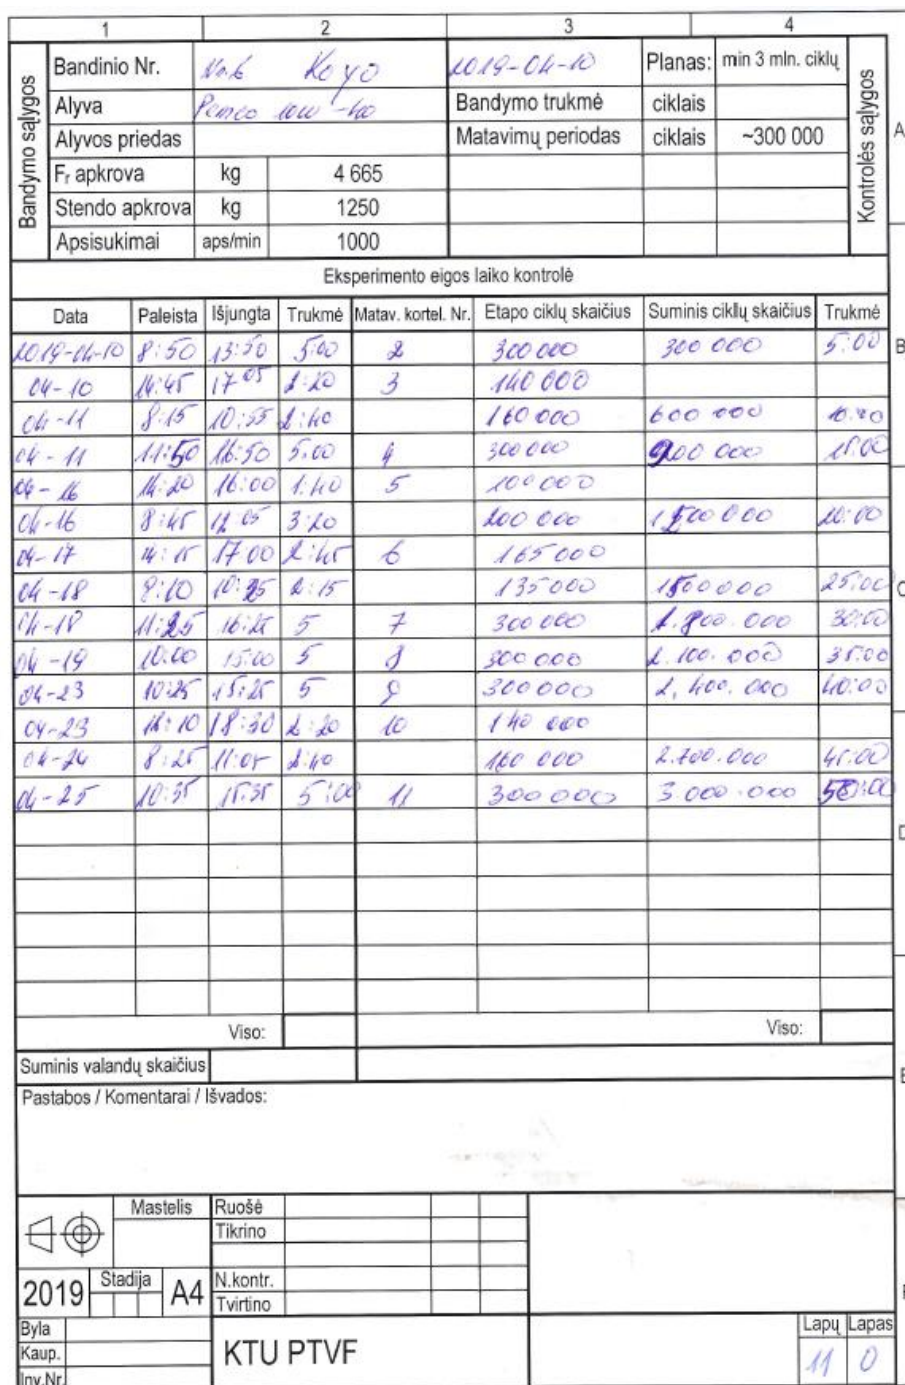 1 2 3 4
Bandymo sąlygos
Kontrolės sąlygos
Bandinio Nr. No.6 Koyo 2019-04-10 Planas: min 3 mln. ciklų
Alyva Pemco 10W-40 Bandymo trukmė ciklais
Alyvos priedas Matavimų periodas ciklais ~300 000
Fr apkrova kg 4 665
Stendo apkrova kg 1250
Apsisukimai aps/min 1000
A
Eksperimento eigos laiko kontrolė
Data Paleista Išjungta Trukmė Matav. kortel. Nr. Etapo ciklų skaičius Suminis ciklų skaičius Trukmė
2019-04-10 8:50 13:50 5:00 2 300 000 300 000 5:00
B
04-10 14:45 17 05 2:20 3 140 000
04-11 8:15 10:55 2:40 160 000 600 000
04-11 11:50 16:50 5:00 4 300 000 900 000 15:00
04-16 14:20 16:00 1:40 5 100 000
04-16 8:45 12 05 3:20 200 000 20:00
04-17 14:15 17:00 2:45 6 165 000
04-18 8:10 2:15 135 000 1500 000 25:00
C
04-18 11:25 16:25 5 7 300 000 1.800.000 30:00
04-19 10:00 15:00 5 8 300 000 2.100.000 35:00
04-23 10:25 15:25 5 9 300 000 2.400.000 40:00
04-23 18:30 2:20 10 140 000
04-24 8:25 11:05 2:40 160 000 2.700.000 45:00
04-25 10:35 15:35 5:00 11 300 000 3.000.000 50:00
Viso: Viso:
Suminis valandų skaičius
Pastabos / Komentarai / Išvados:
Mastelis Ruošė
Tikrino
2019 Stadija A4 N.kontr.
Tvirtino
Byla KTU PTVF Lapų Lapas
Kaup. 11 0
Inv.Nr